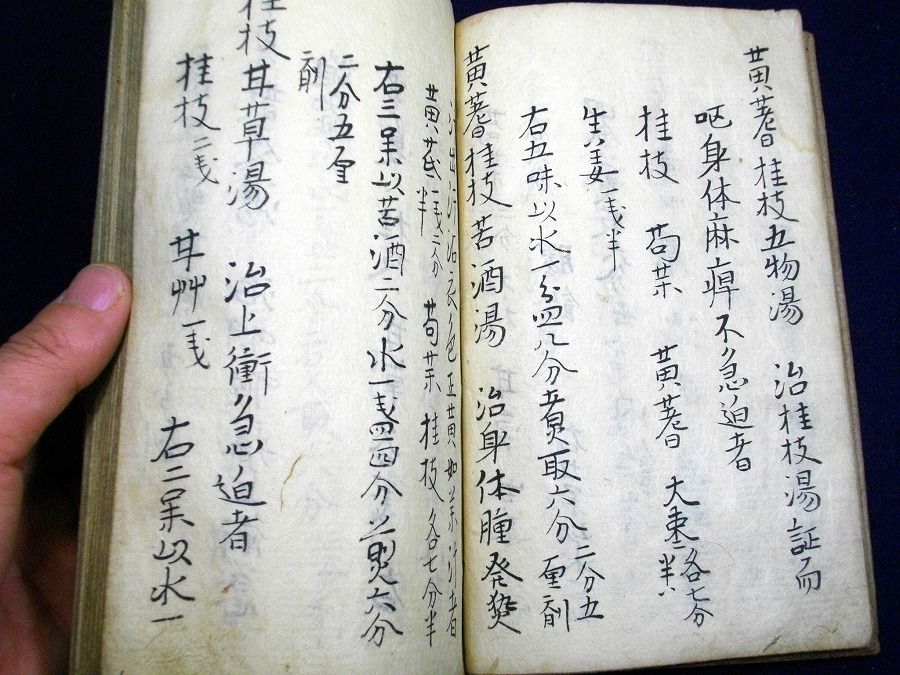 黄蓍桂枝五物湯 治桂枝湯証而
呕身体麻痺不急迫者
桂枝 芍薬 黄蓍 大棗 各七分半
生姜一戔半
右五味以水一盃八分煮取六分 二分五厘剤
黄蓍桂枝苦酒湯 治身体腫発熱
汗出汗沾衣色正黄如薬汁者
黄芪一戔二分半 芍薬 桂枝 各七分半
右三味以苦酒二分水一盞四分煎六分
二分五厘
剤
桂枝甘草湯 治上衝急迫者
桂枝二戔 甘艸一戔 右二味以水一